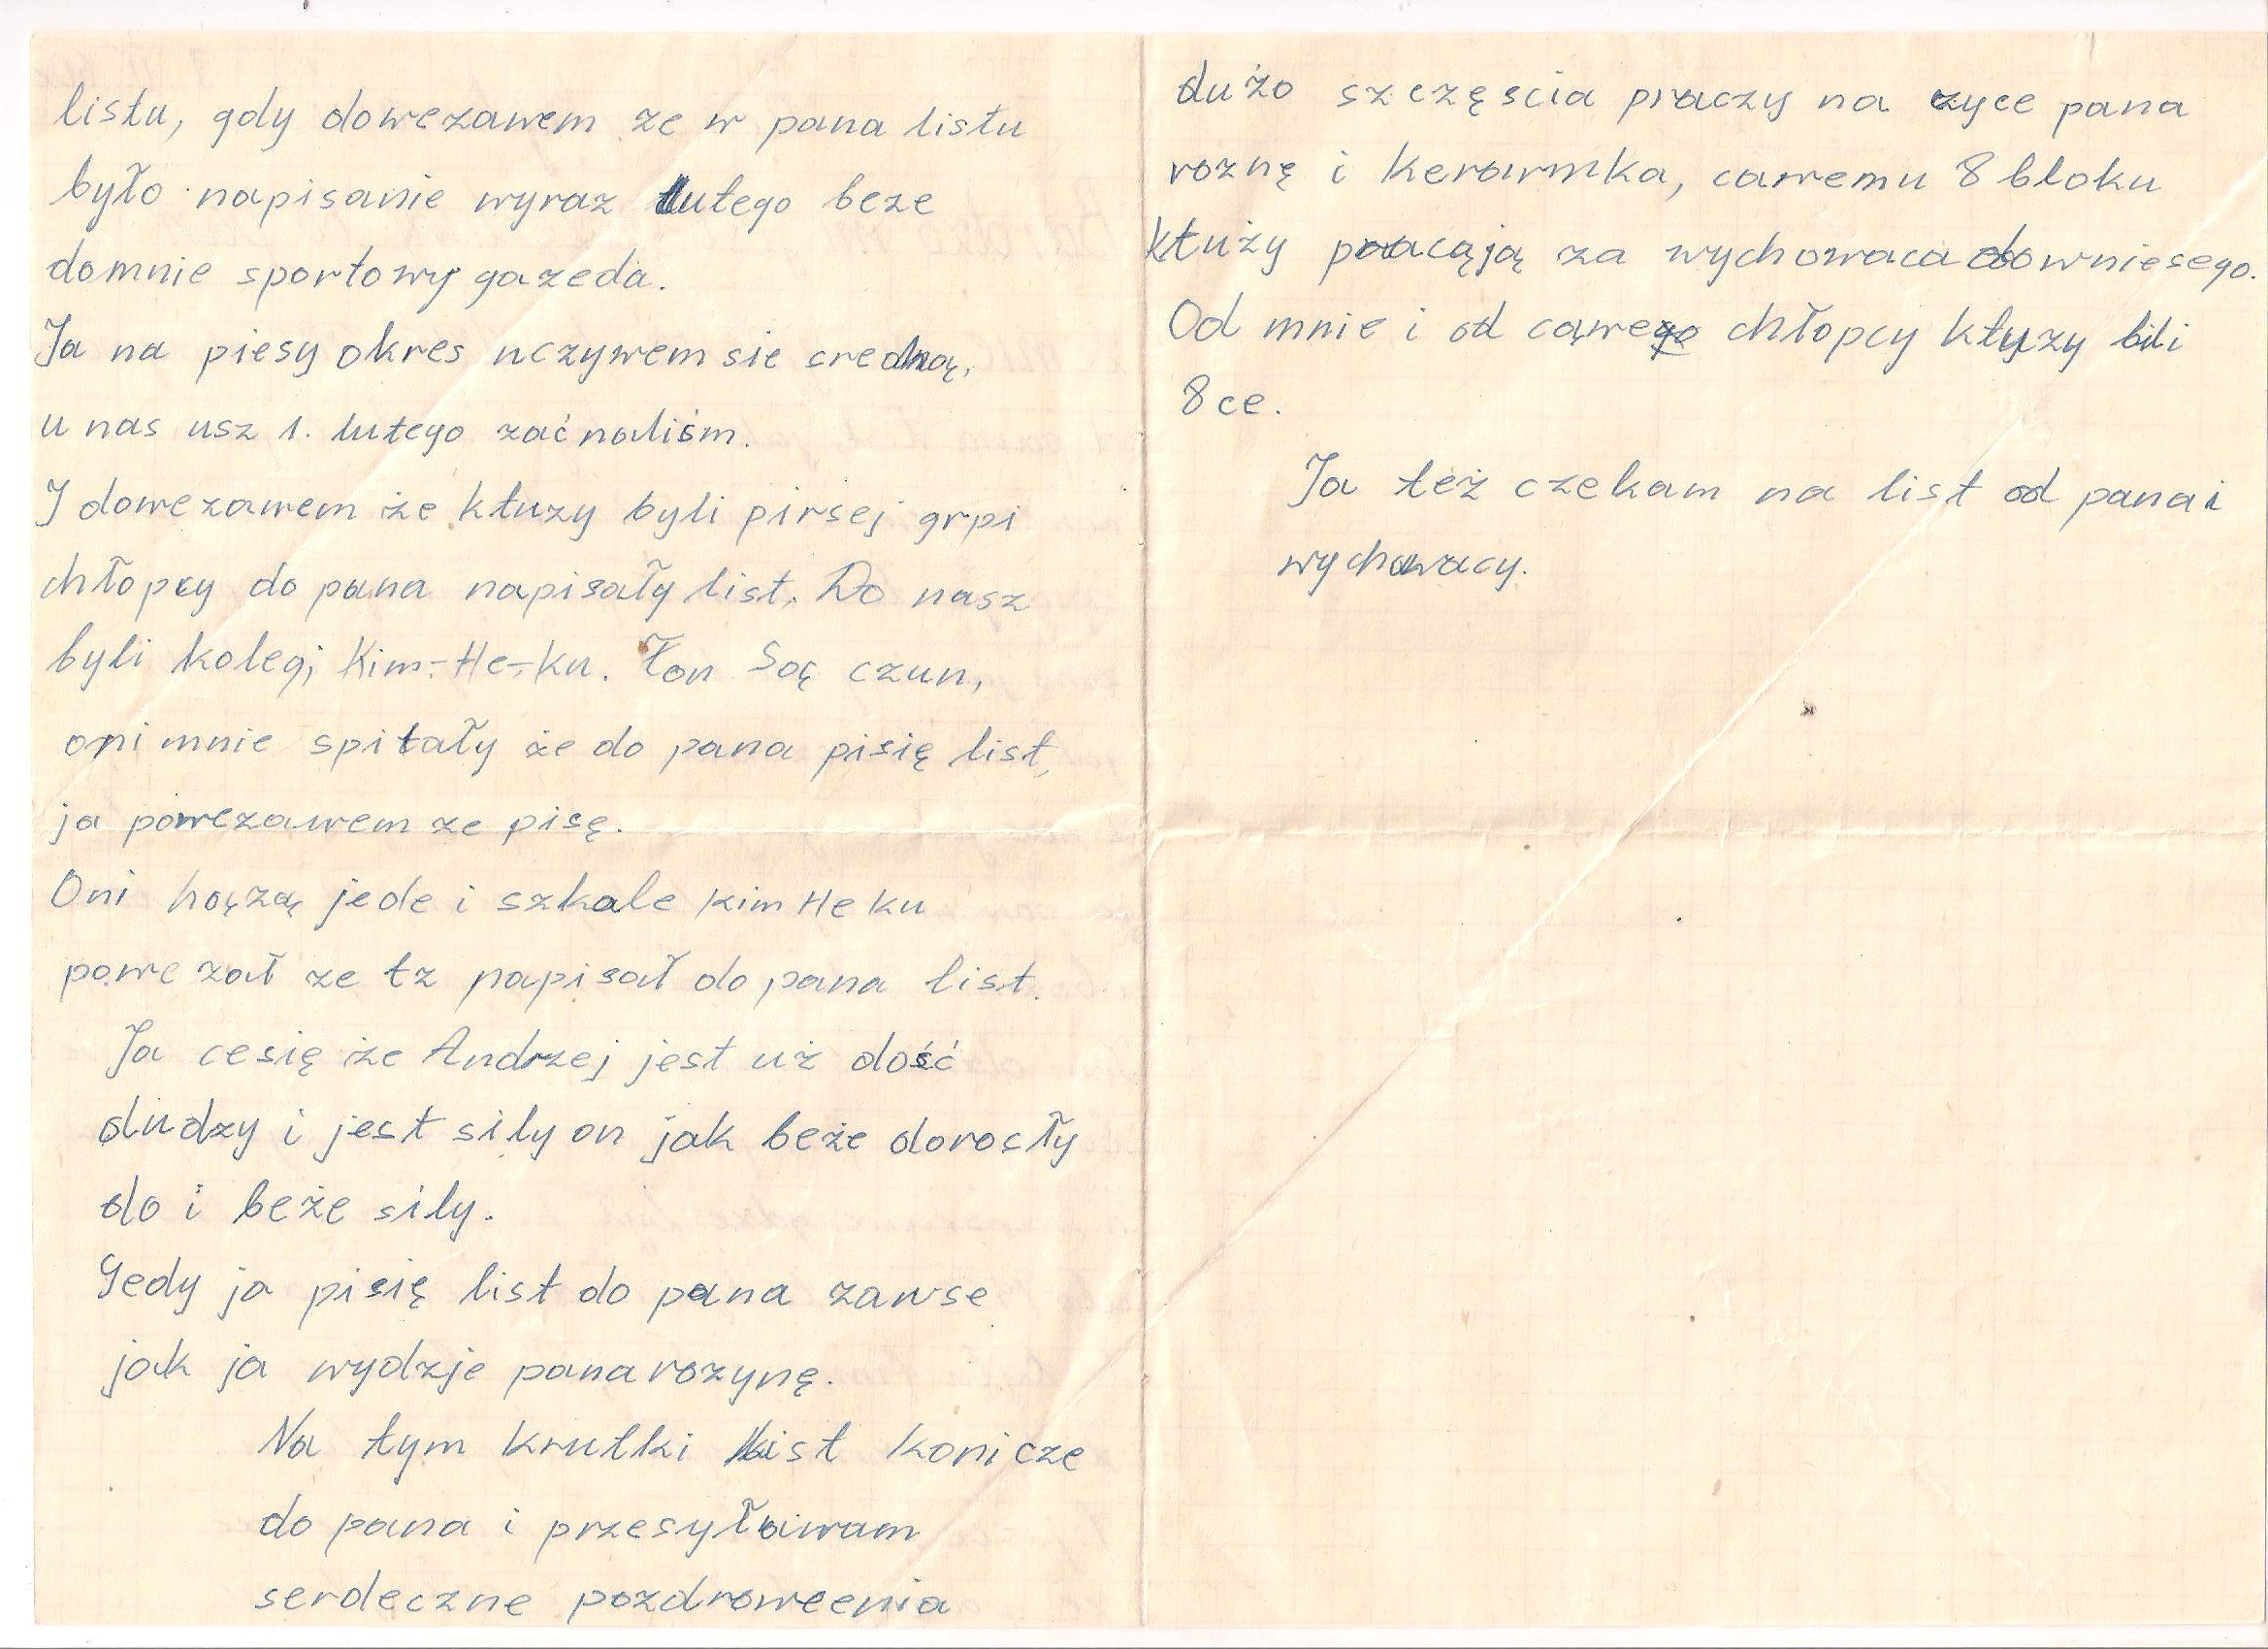 listu, gdy dowezawem ze w pana listu
było napisanie wyraz lutego beze
domnie sportowy gazeda.
Ja na piesy okres uczywem sie credną,
u nas usz 1. lutego zaćnaliśm.
I dowezawem że ktuzy byli pirsej grpi
chłopcy do pana napisały list. Do nasz
byli kolegi Kim-He-Ku. Łon Soę czun,
oni mnie spitały że do pana pisię list,
ja powezawem ze pisę.
Oni hoęzą jede i szkale Kim He Ku
powezał ze tz napisał do pana list.
Ja cesię że Andrzej jest uż dość
dudzy i jest sily on jak beże dorosły
do i beże sily.
Gedy ja pisię list do pana zawse
jak ja wydzje pana rozynę.
Na tym krutki list konicze
do pana i przesyławam
serdeczne pozdroweenia
dużo szczęscia praczy na zyce pana
roznę i Kerowmka, cawemu 8 bloku
ktuży pracąją za wychowaca downiesego.
Od mnie i od cąwego chłopcy ktuzy bili
8 ce.
Ja też czekam na list od pana i
wychowacy.